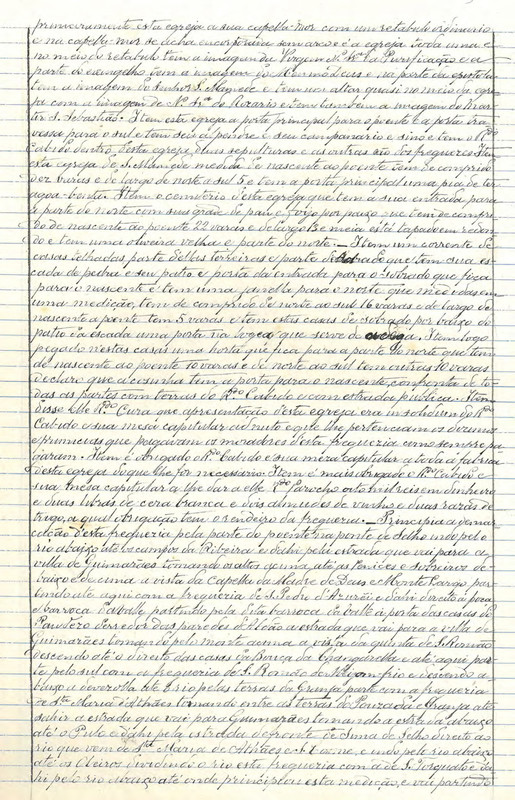 primeiramente esta egreja a sua capella-mor com um retabulo ordinario
e na capella-mor se acha encorporada sem arco e a egreja toda uma e
no meio do retabulo tem a imagem da Virgem N. Sr.ª da Purificação e a
parte do evangelho tem a imagem do e na parte da epistola
tem a imagem do Senhor S. Mamede e tem um altar quasi no meio da egre
ja com a imagem de N. Sr.ª do Rozario e tem tambem a imagem do Martir
S. Sebastião. Item esta egreja a porta principal para o poente e a porta tra
vessa para o sul e tem seis e seu campanario e sino e tem o R.do
Cabido dentro d'esta egreja duas sepulturas e as outras são dos freguezes. Item
esta egreja de S. Mamede medida de nascente ao poente tem de comprido
dez varas e de largo de norte a sul 5 e tem a porta principal uma pia de
agoa-benta. Item o cemiterio d'esta egreja que tem a sua entrada para
a parte do norte com sua grade de pau e por baixo, que tem de compri
do de nascente ao poente 22 varas e de largo 13 e meia está tapado em redon
do e tem uma oliveira velha a parte do norte. — Item um corrente de
casas telhadas, parte d'ellas terreiras e parte sobrado que tem sua es
cada de pedra e seu patio e porta da entrada para o sobrado que fica
para o nascente e tem uma janella para o norte que medidas em
uma medição, tem de comprido de norte ao sul 16 varas e de largo de
nascente a poente tem 5 varas e tem estas casas de sobrado por baixo do
patio da escada uma porta na que serve de adega. Item logo
pegado n'estas casas uma horta que fica para a parte do norte que tem
de nascente ao poente 10 varas e de norte ao sul tem outras 10 varas,
declaro que a cosinha tem a porta para o nascente, confronta de to
das as partes com terras do R.do Cabido e com estrada publica. — Item
disse elle R.do Cura que apresentação d'esta egreja era in solidum do R.do
Cabido e sua meza capitular ad nutum e que lhe pertenciam os dizimos
e primicias que pagavam os moradores d'esta freguezia como sempre pa
garam. — Item é obrigado o R.do Cabido e sua meza capitular a toda a fabrica
d'esta egreja do que lhe for necessario. Item é mais obrigado o R.do Cabido e
sua meza capitular a lhe dar a elle R.do Parocho oito mil reis em dinheiro
e duas libras de cera branca e dois almudes de vinho e duas razas de
trigo, a qual obrigação tem o rendeiro da freguezia. — Principia a demar
cação d'esta freguezia pela parte do poente na ponte de Selho indo pelo
rio abaixo até os campos da Ribeira e d'ahi pela estrada que vai para a
villa de Guimarães tomando os altos acima, até as e sobreiros de
baixo e de cima a vista da Capella da Madre de Deus e Monte Largo par
tindo até aqui com a freguezia de S. Pedro d'Azurem e d'ahi direito á poça
parede por detraz das paredes d'Aldão a estrada que vai para a villa de
Guimarães tomando pelo monte acima a vista da quinta de S. Romão
descendo até o direito das casas da e até aqui par
te pelo sul com a freguezia de S. Romão de Mezomfrio e descendo a
baixo pelas terras da Granja parte com a freguezia
de St.ª Maria d'Athães tornando entre as terras de Pouzada e Granja até
sahir a estrada que vai para Guimarães tomando a estrada abaixo
até o e d'ahi pela estrada defronte de Cima de Selho direito ao
rio que vem de St.ª Maria de Athães e indo pelo rio abaixo
até os Oleiros dividindo o rio esta freguezia com a de S. Torquato e d'a
hi pelo rio abaixo até onde principiou esta medição, e vai partindo